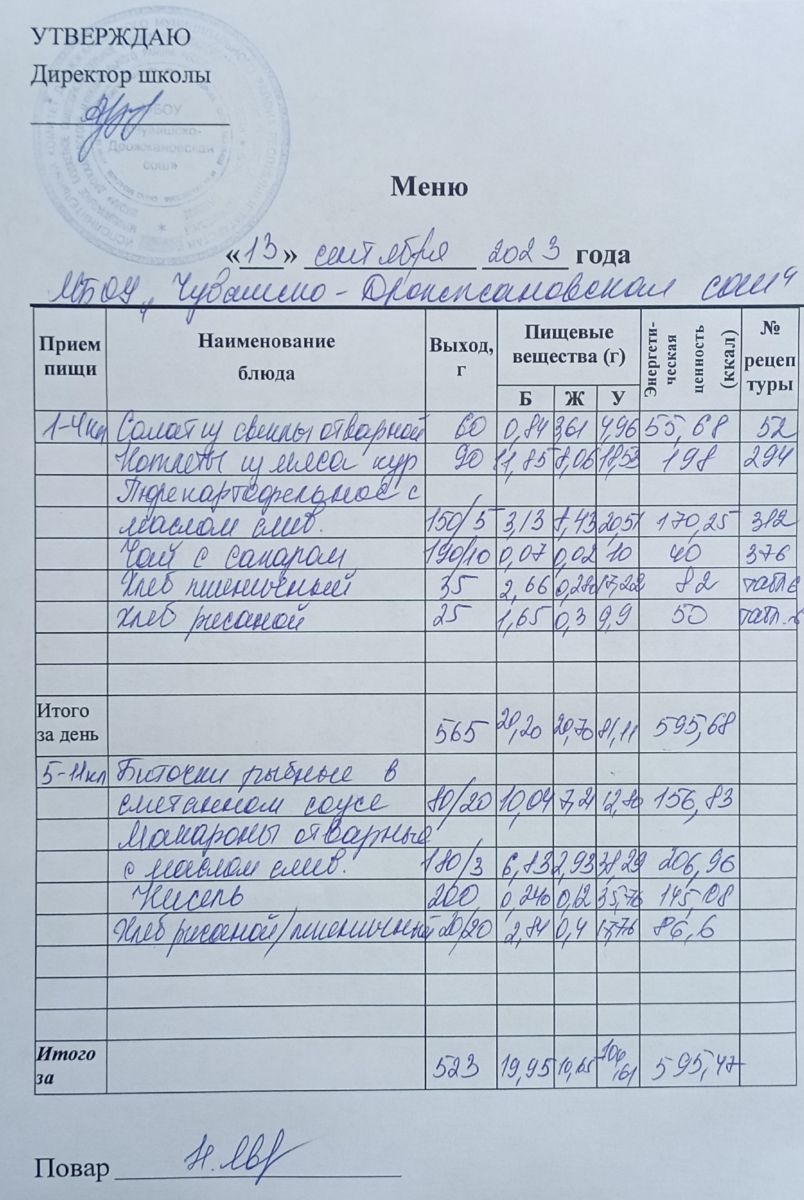 УТВЕРЖДАЮ
Директор школы
БОУ
Дрожжановская
сош»
Меню
«13» сентября 2023 года
МБОУ „Чувашско-Дрожжановская сош“
Прием пищи Наименование блюда Выход, г Пищевые вещества (г) Энергетическая ценность (ккал) № рецептуры
Б Ж У
1-4кл Салат из свеклы отварной 60 0,84 3,61 4,96 55,68 52
Котлеты из мяса кур 90 11,85 8,06 198 294
Пюре картофельное с
маслом слив. 150/5 3,13 20,51 170,25 312
Чай с сахаром 190/10 0,07 0,02 10 40 376
Хлеб пшеничный 35 2,66 0,280 17,22 82 табл 6
Хлеб ржаной 25 1,65 0,3 9,9 50 табл.
Итого за день 565 20,20 20,70 81,11 595,68
5-11кл Биточки рыбные в
сметанном соусе 80/20 10,04 7,2 12,80 156,83
Макароны отварные
с маслом слив. 180/3 6,83 2,93 38,29 206,96
Кисель 200 0,240 0,12 35,76 145,08
Хлеб ржаной/пшеничный 20/20 2,84 0,4 17,76 86,6
Итого за 523 19,95 10,65 104,61 595,47
Повар